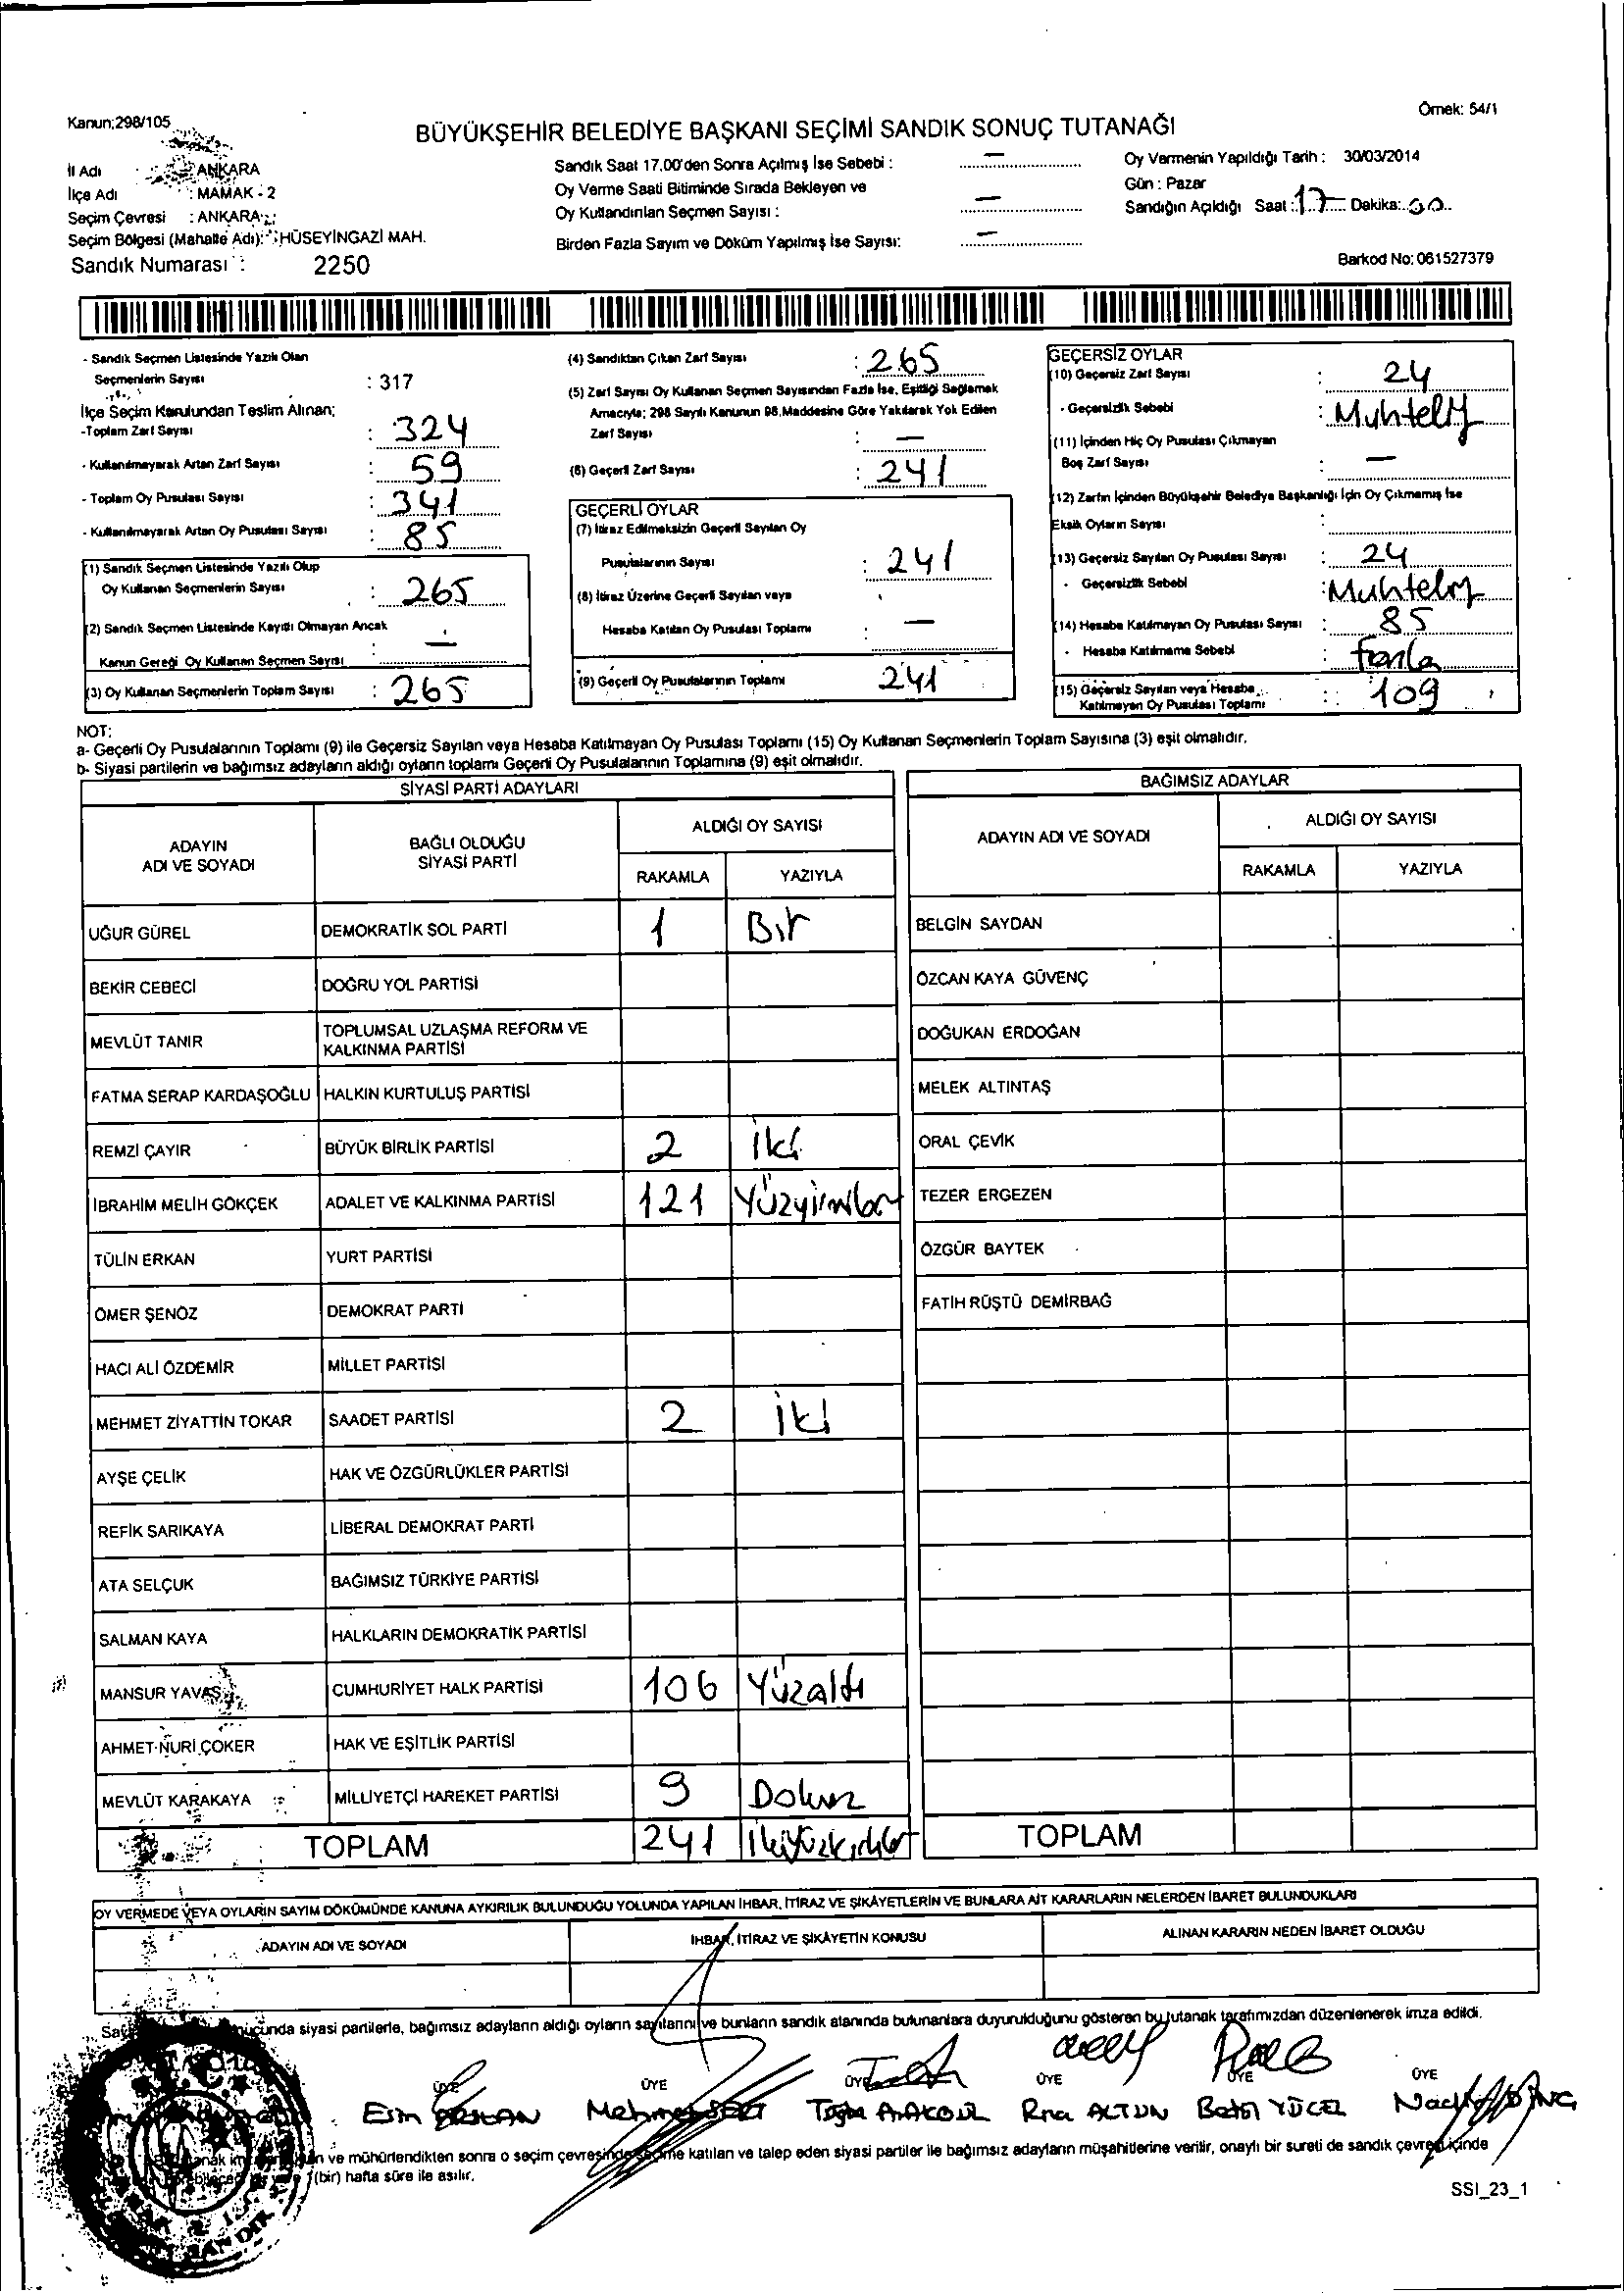 Kanun;298/105
Örnek: 54/1
BÜYÜKŞEHİR BELEDİYE BAŞKANI SEÇİMİ SANDIK SONUÇ TUTANAĞI
İl Adı : ANKARA
İlçe Adı : MAMAK - 2
Seçim Çevresi : ANKARA
Seçim Bölgesi (Mahalle Adı): HÜSEYİNGAZİ MAH.
Sandık Numarası : 2250
Sandık Saat 17.00'den Sonra Açılmış İse Sebebi : —
Oy Verme Saati Bitiminde Sırada Bekleyen ve
Oy Kullandırılan Seçmen Sayısı : —
Birden Fazla Sayım ve Döküm Yapılmış İse Sayısı: —
Oy Vermenin Yapıldığı Tarih : 30/03/2014
Gün : Pazar
Sandığın Açıldığı Saat : 17 Dakika: 00
Barkod No: 061527379
- Sandık Seçmen Listesinde Yazılı Olan
Seçmenlerin Sayısı : 317
İlçe Seçim Kurulundan Teslim Alınan;
-Toplam Zarf Sayısı : 324
- Kullanılmayarak Artan Zarf Sayısı : 59
- Toplam Oy Pusulası Sayısı : 341
- Kullanılmayarak Artan Oy Pusulası Sayısı : 85
(1) Sandık Seçmen Listesinde Yazılı Olup
Oy Kullanan Seçmenlerin Sayısı : 265
(2) Sandık Seçmen Listesinde Kayıtlı Olmayan Ancak
Kanun Gereği Oy Kullanan Seçmen Sayısı : —
(3) Oy Kullanan Seçmenlerin Toplam Sayısı : 265
(4) Sandıktan Çıkan Zarf Sayısı : 265
(5) Zarf Sayısı Oy Kullanan Seçmen Sayısından Fazla İse, Eşitliği Sağlamak
Amacıyla; 298 Sayılı Kanunun 98.Maddesine Göre Yakılarak Yok Edilen
Zarf Sayısı : —
(6) Geçerli Zarf Sayısı : 241
GEÇERLİ OYLAR
(7) İtiraz Edilmeksizin Geçerli Sayılan Oy
Pusulalarının Sayısı : 241
(8) İtiraz Üzerine Geçerli Sayılan veya
Hesaba Katılan Oy Pusulası Toplamı : —
(9) Geçerli Oy Pusulalarının Toplamı 241
GEÇERSİZ OYLAR
(10) Geçersiz Zarf Sayısı : 24
- Geçersizlik Sebebi : Muhtelif
(11) İçinden Hiç Oy Pusulası Çıkmayan
Boş Zarf Sayısı : —
(12) Zarfın İçinden Büyükşehir Belediye Başkanlığı İçin Oy Çıkmamış İse
Eksik Oyların Sayısı :
(13) Geçersiz Sayılan Oy Pusulası Sayısı : 24
- Geçersizlik Sebebi : Muhtelif
(14) Hesaba Katılmayan Oy Pusulası Sayısı : 85
- Hesaba Katılmama Sebebi : Fazla
(15) Geçersiz Sayılan veya Hesaba
Katılmayan Oy Pusulası Toplamı : 109
NOT:
a- Geçerli Oy Pusulalarının Toplamı (9) ile Geçersiz Sayılan veya Hesaba Katılmayan Oy Pusulası Toplamı (15) Oy Kullanan Seçmenlerin Toplam Sayısına (3) eşit olmalıdır.
b- Siyasi partilerin ve bağımsız adayların aldığı oyların toplamı Geçerli Oy Pusulalarının Toplamına (9) eşit olmalıdır.
SİYASİ PARTİ ADAYLARI
ADAYIN
ADI VE SOYADI
BAĞLI OLDUĞU
SİYASİ PARTİ
ALDIĞI OY SAYISI
RAKAMLA YAZIYLA
UĞUR GÜREL DEMOKRATİK SOL PARTİ 1 Bir
BEKİR CEBECİ DOĞRU YOL PARTİSİ
MEVLÜT TANIR TOPLUMSAL UZLAŞMA REFORM VE
KALKINMA PARTİSİ
FATMA SERAP KARDAŞOĞLU HALKIN KURTULUŞ PARTİSİ
REMZİ ÇAYIR BÜYÜK BİRLİK PARTİSİ 2 İki
İBRAHİM MELİH GÖKÇEK ADALET VE KALKINMA PARTİSİ 121 Yüzyirmibir
TÜLİN ERKAN YURT PARTİSİ
ÖMER ŞENÖZ DEMOKRAT PARTİ
HACI ALİ ÖZDEMİR MİLLET PARTİSİ
MEHMET ZİYATTİN TOKAR SAADET PARTİSİ 2 İki
AYŞE ÇELİK HAK VE ÖZGÜRLÜKLER PARTİSİ
REFİK SARIKAYA LİBERAL DEMOKRAT PARTİ
ATA SELÇUK BAĞIMSIZ TÜRKİYE PARTİSİ
SALMAN KAYA HALKLARIN DEMOKRATİK PARTİSİ
MANSUR YAVAŞ CUMHURİYET HALK PARTİSİ 106 Yüzaltı
AHMET NURİ ÇOKER HAK VE EŞİTLİK PARTİSİ
MEVLÜT KARAKAYA MİLLİYETÇİ HAREKET PARTİSİ 9 Dokuz
TOPLAM 241 İkiyüzkırkbir
BAĞIMSIZ ADAYLAR
ADAYIN ADI VE SOYADI
ALDIĞI OY SAYISI
RAKAMLA YAZIYLA
BELGİN SAYDAN
ÖZCAN KAYA GÜVENÇ
DOĞUKAN ERDOĞAN
MELEK ALTINTAŞ
ORAL ÇEVİK
TEZER ERGEZEN
ÖZGÜR BAYTEK
FATİH RÜŞTÜ DEMİRBAĞ
TOPLAM
OY VERMEDE VEYA OYLARIN SAYIM DÖKÜMÜNDE KANUNA AYKIRILIK BULUNDUĞU YOLUNDA YAPILAN İHBAR, İTİRAZ VE ŞİKÂYETLERİN VE BUNLARA AİT KARARLARIN NELERDEN İBARET BULUNDUKLARI
ADAYIN ADI VE SOYADI
İHBAR, İTİRAZ VE ŞİKÂYETİN KONUSU
ALINAN KARARIN NEDEN İBARET OLDUĞU
siyasi partilerle, bağımsız adayların aldığı oyların sayılarını ve bunların sandık alanında bulunanlara duyurulduğunu gösteren bu tutanak tarafımızdan düzenlenerek imza edildi.
ÜYE ÜYE ÜYE ÜYE ÜYE ÜYE
Mehmet ALTUN YÜCEL
ve mühürlendikten sonra o seçim çevresinde seçime katılan ve talep eden siyasi partiler ile bağımsız adayların müşahitlerine verilir, onaylı bir sureti de sandık çevresi içinde
(bir) hafta süre ile asılır.
SSI_23_1